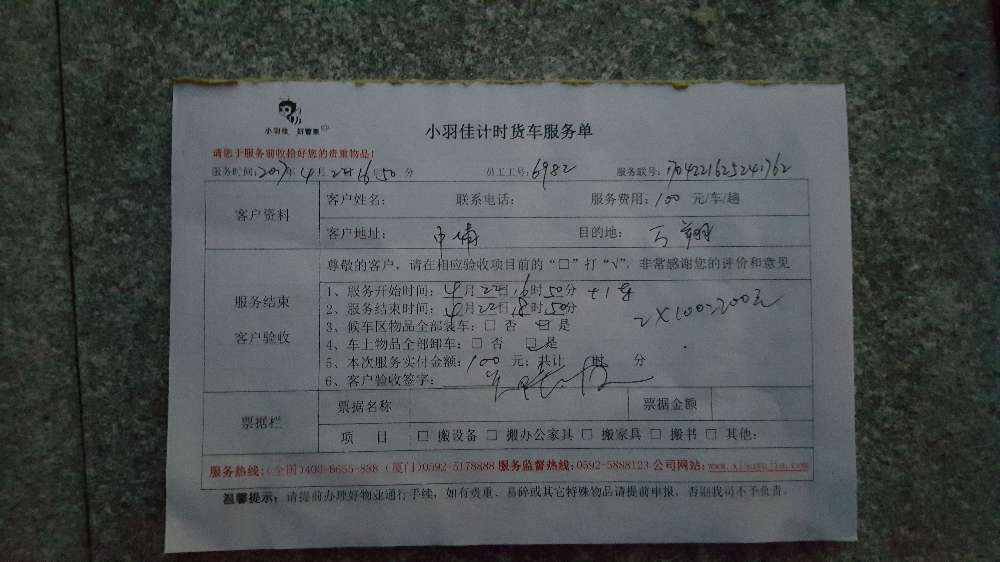 小羽佳 好管家
小羽佳计时货车服务单
请您于服务前收拾好您的贵重物品!
服务时间:2017年4月22日16时50分 员工工号:6982 服务联号:1704221625241762
客户资料
客户姓名: 联系电话: 服务费用:100元/车/趟
客户地址: 中埔 目的地: 万翔
服务结束
客户验收
尊敬的客户,请在相应验收项目前的“□”打“√”,非常感谢您的评价和意见
1、服务开始时间:4月22日16时50分 +1车
2、服务结束时间:4月22日18时50分
2×100=200元
3、候车区物品全部装车:□ 否 □ 是
4、车上物品全部卸车:□ 否 □ 是
5、本次服务实付金额:100元;共计 时 分
6、客户验收签字:
票据栏
票据名称 票据金额
项 目 □ 搬设备 □ 搬办公家具 □ 搬家具 □ 搬书 □ 其他:
服务热线:(全国)400-8655-888 (厦门)0592-5178888 服务监督热线:0592-5888123 公司网站:www.xiaoyujia.com
温馨提示:请提前办理好物业通行手续,如有贵重、易碎或其它特殊物品请提前申报,否则我司不予负责。